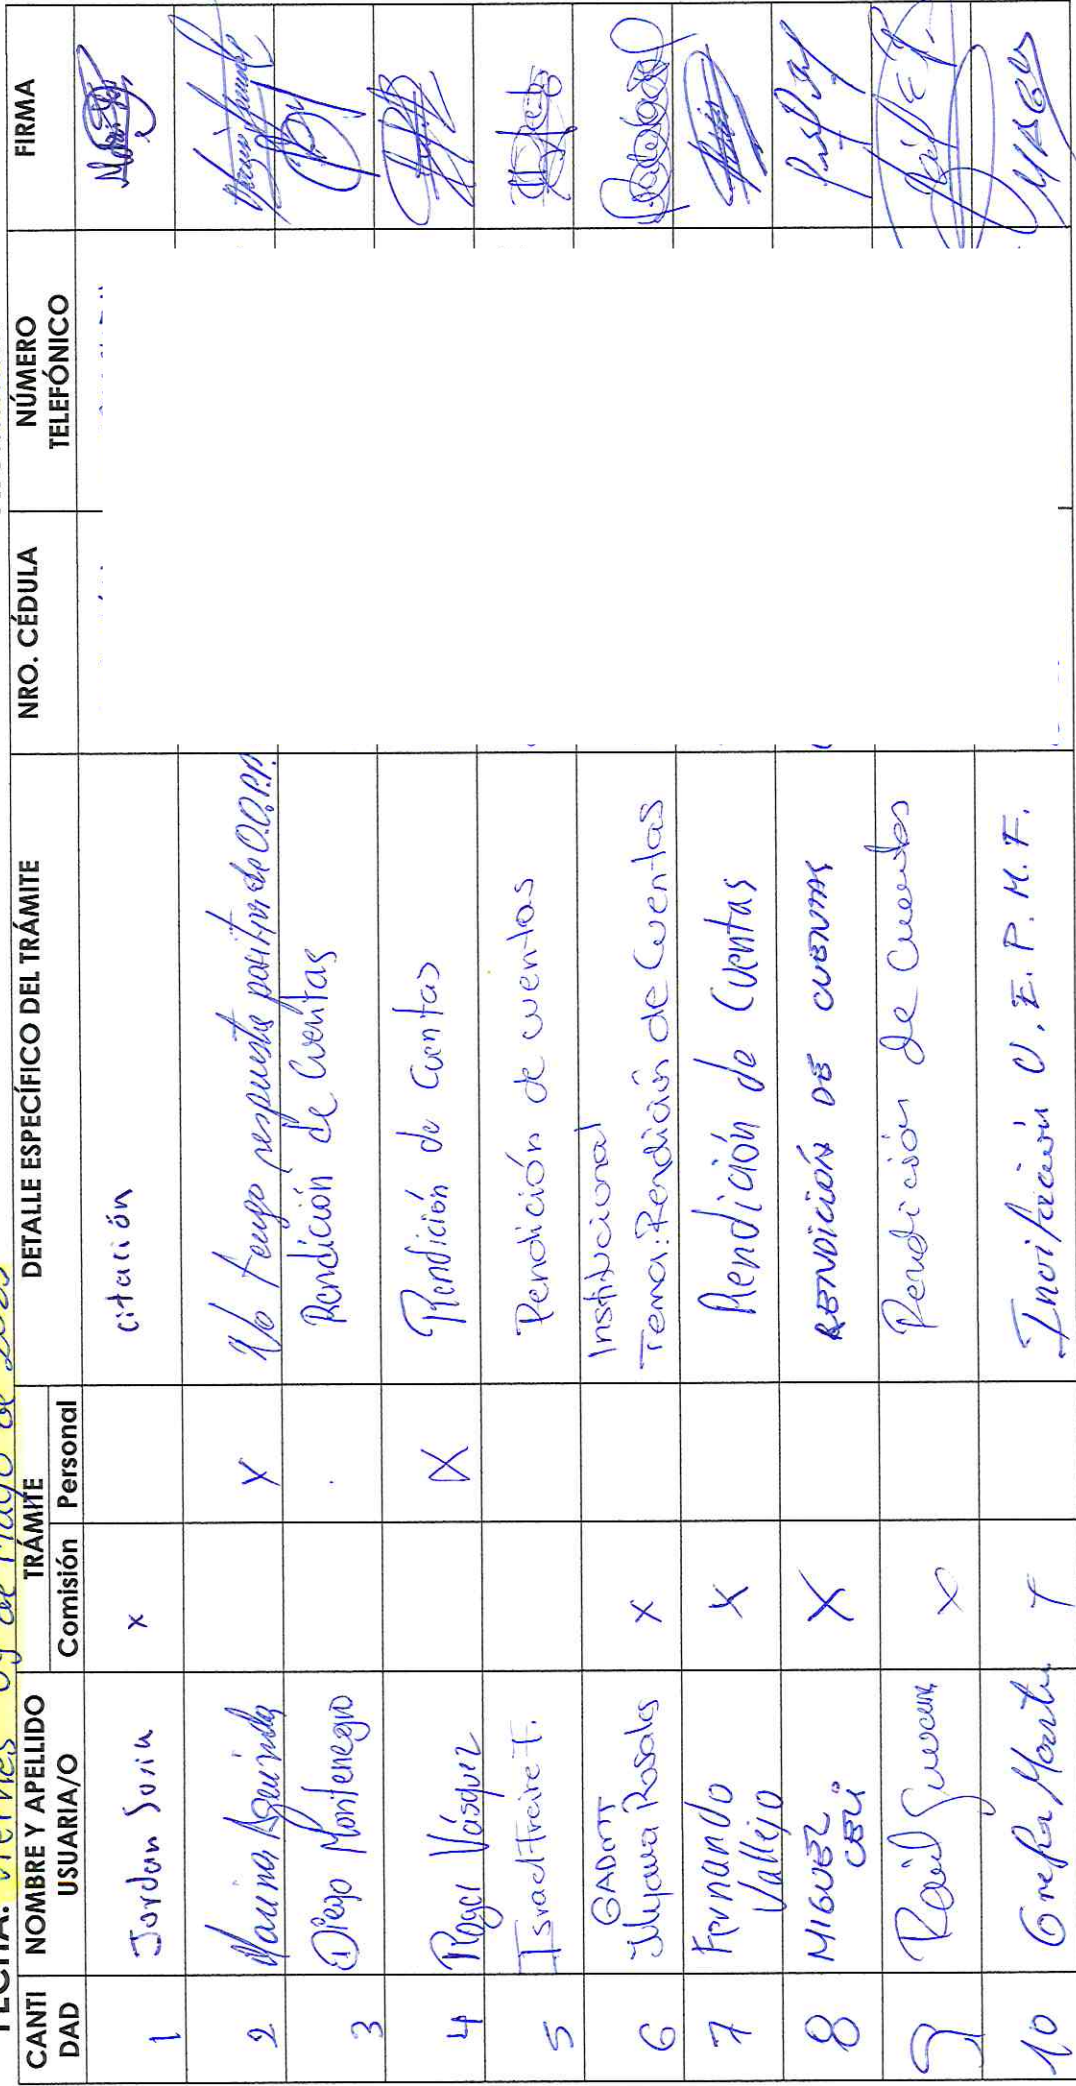 FECHA: Viernes 09 de Mayo de 2025
CANTI DAD | NOMBRE Y APELLIDO USUARIA/O | TRÁMITE Comisión Personal | DETALLE ESPECÍFICO DEL TRÁMITE | NRO. CÉDULA | NÚMERO TELEFÓNICO | FIRMA
1 Jordan x citación
2 Marina Aguinda X No tengo respuesta positiva de OO.PP.
3 Diego Montenegro Rendición de Cuentas
4 Roger Vásquez X Rendición de Cuentas
5 Israel Freire T. Rendición de cuentas
6 GADMT Rosales x Institucional
Tema: Rendición de Cuentas
7 Fernando Vallejo x Rendición de Cuentas
8 MIGUEL X RENDICIÓN DE CUENTAS
9 Raúl x Rendición de Cuentas
10 Grefa Invitación